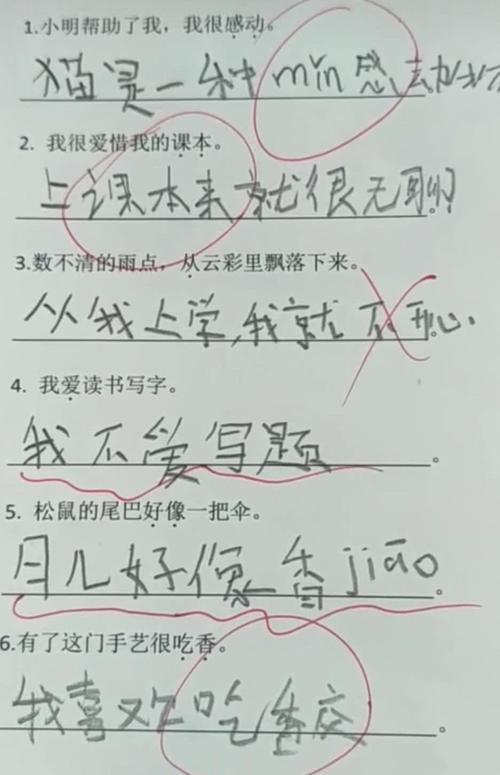 1.小明帮助了我，我很感动。
猫是一种min感动物
2. 我很爱惜我的课本。
上课本来就很无聊
3.数不清的雨点，从云彩里飘落下来。
从我上学,我就不开心.
4. 我爱读书写字。
我不爱写题。
5. 松鼠的尾巴好像一把伞。
月儿好像香jiāo。
6.有了这门手艺很吃香。
我喜欢吃香交。